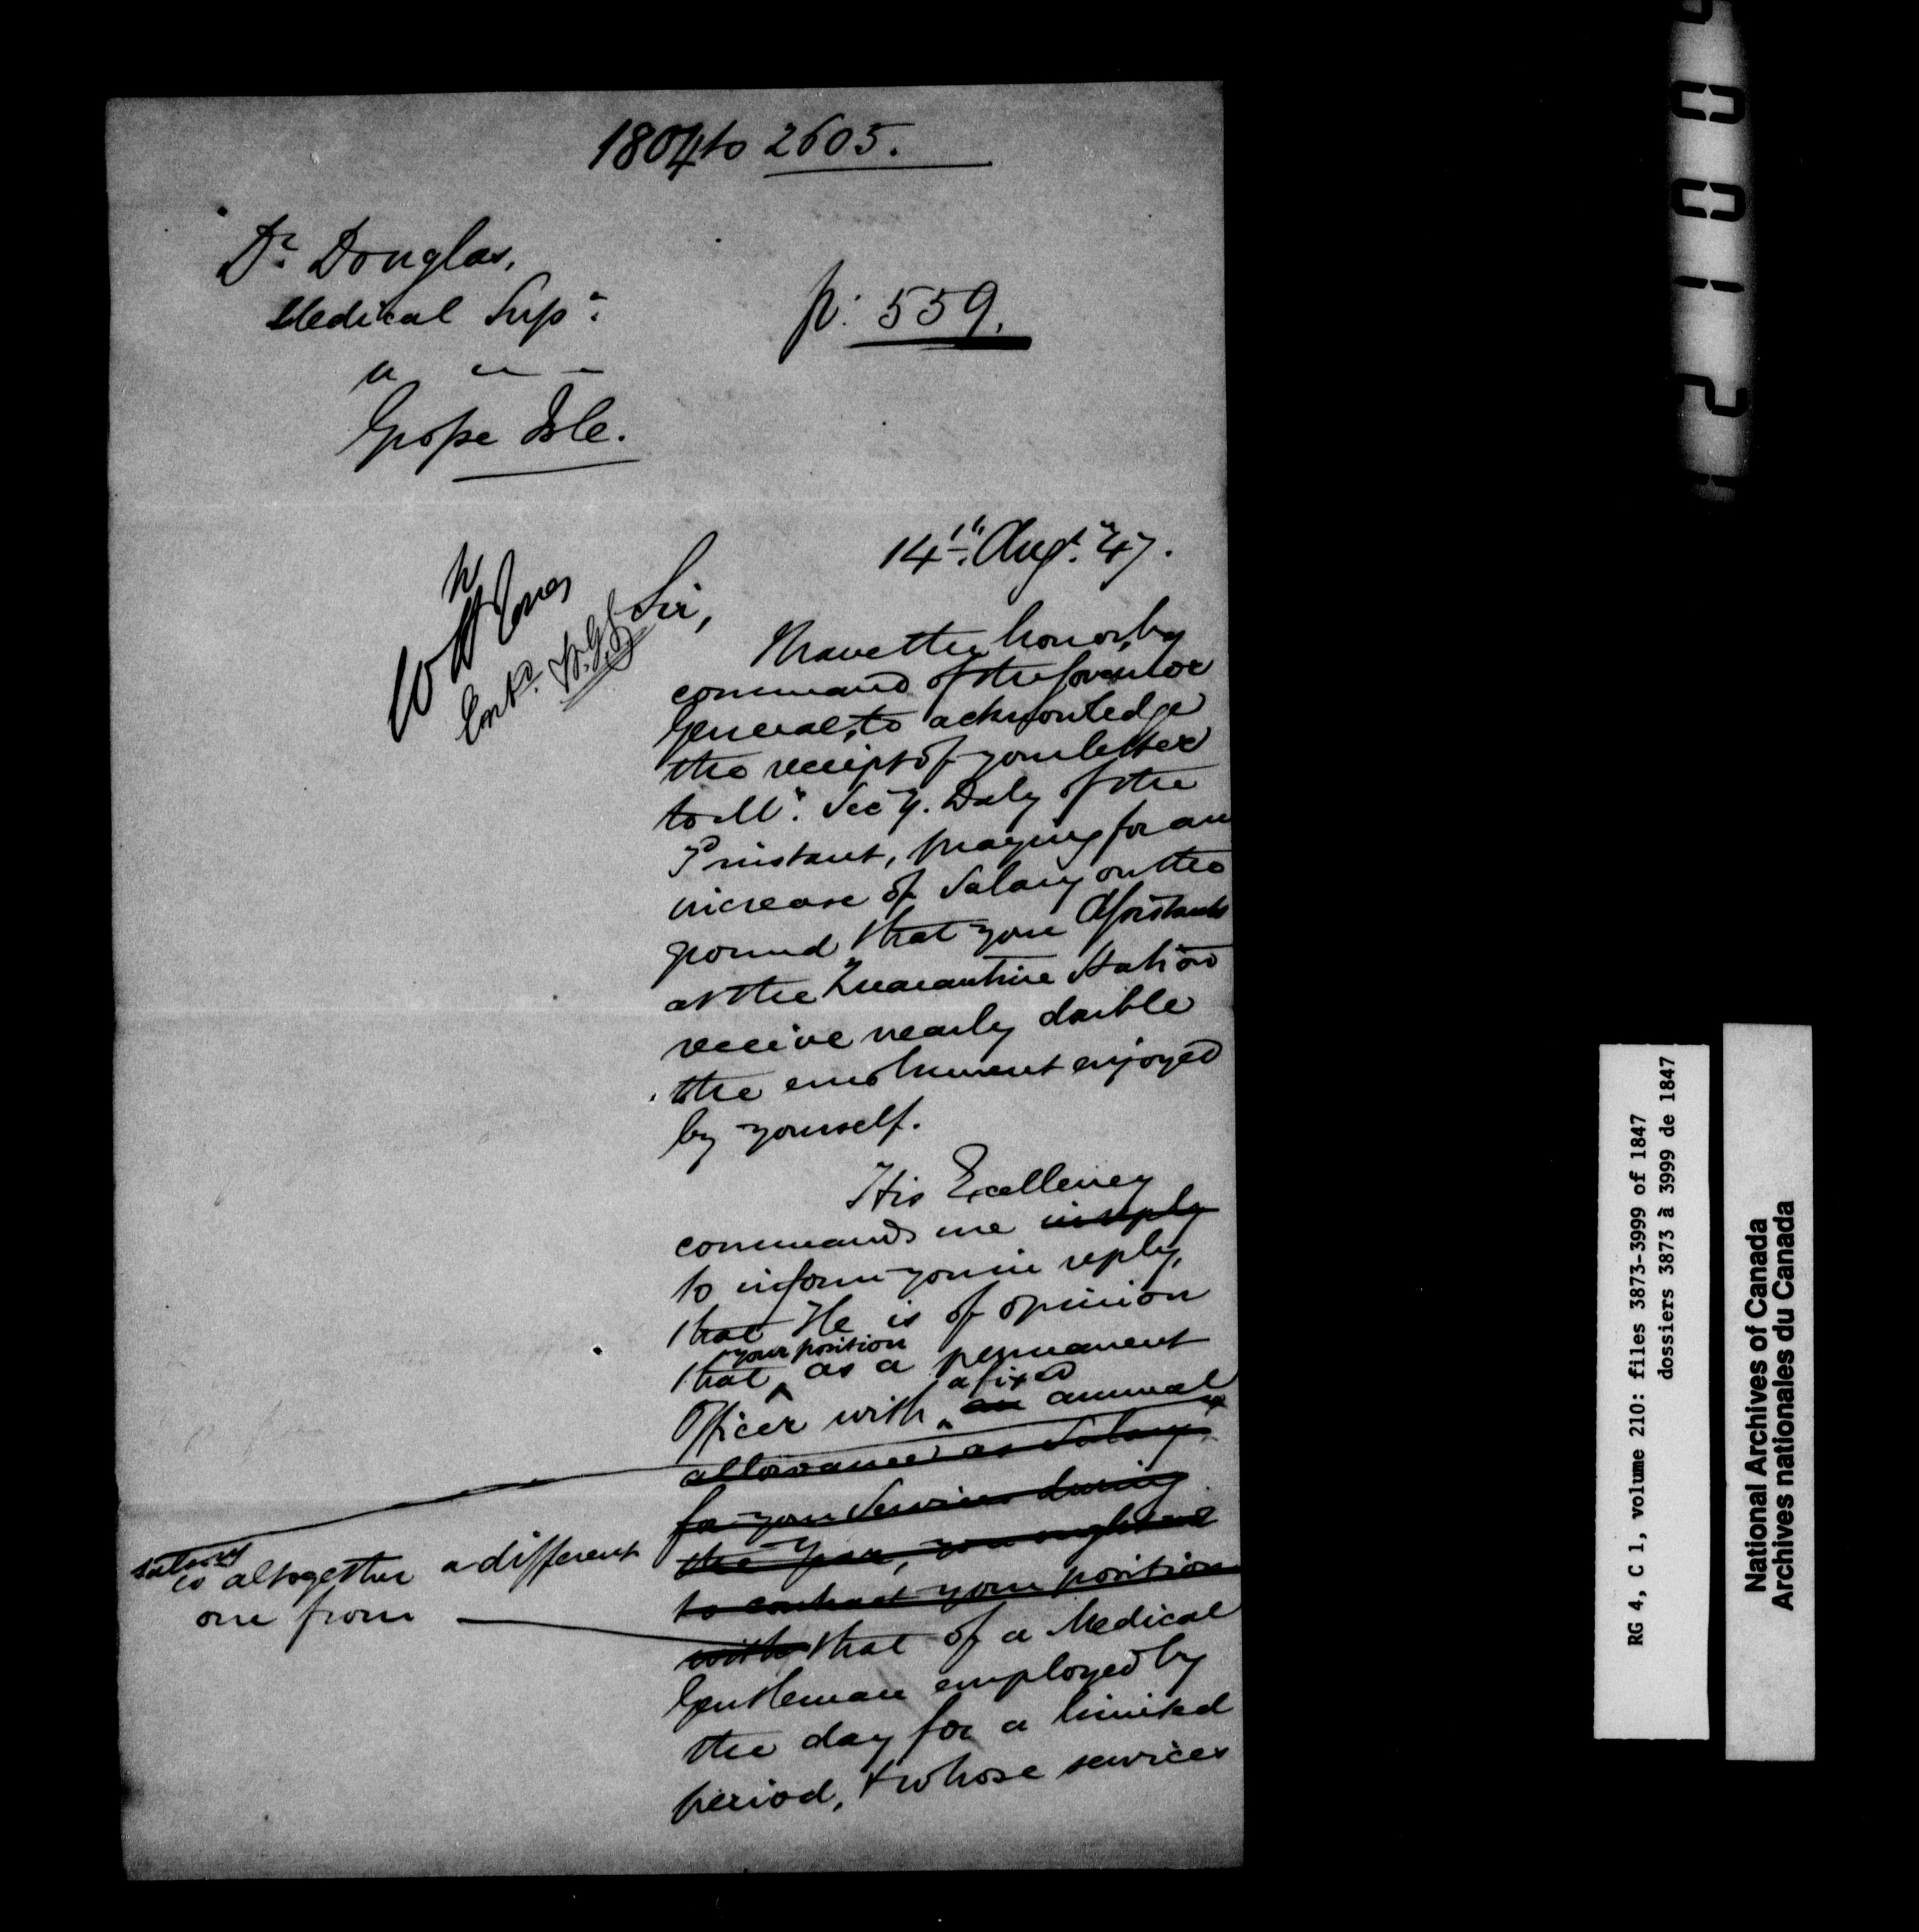 1804 to 2605.
Dr. Douglas,
Medical Supt.
p: 559.
Grosse Isle.
14th. Augt. 47.
Sir,
I have the honor, by
command of the Governor
General, to acknowledge
the receipt of your letter
to Mr. Secy. Daly of the
instant, praying for an
increase of Salary on the
ground that your Assistants
at the Quarantine Station
receive nearly double
the emolument enjoyed
by yourself.
His Excellency
commands me in reply
to inform you in reply,
that He is of opinion
your position
that as a permanent
a fixed
Officer with an annual
allowance as Salary
for your Services during
the Year, you ought not
to contrast your position
with that of a Medical
Gentleman employed by
the day for a limited
period, & whose services
salary
is altogether a different
one from
0012
RG 4, C 1, volume 210: files 3873-3999 of 1847
dossiers 3873 à 3999 de 1847
National Archives of Canada
Archives nationales du Canada